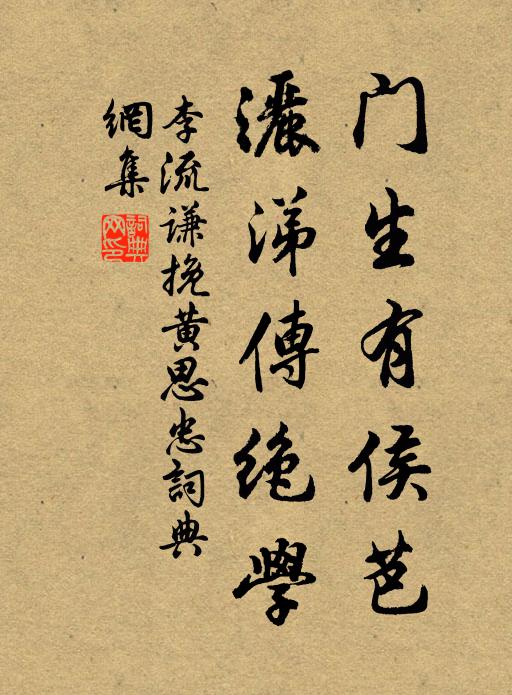 门生有侯芭
灑涕傳絶學
李流谦挽黄思忠詞典
網集
詞典網印